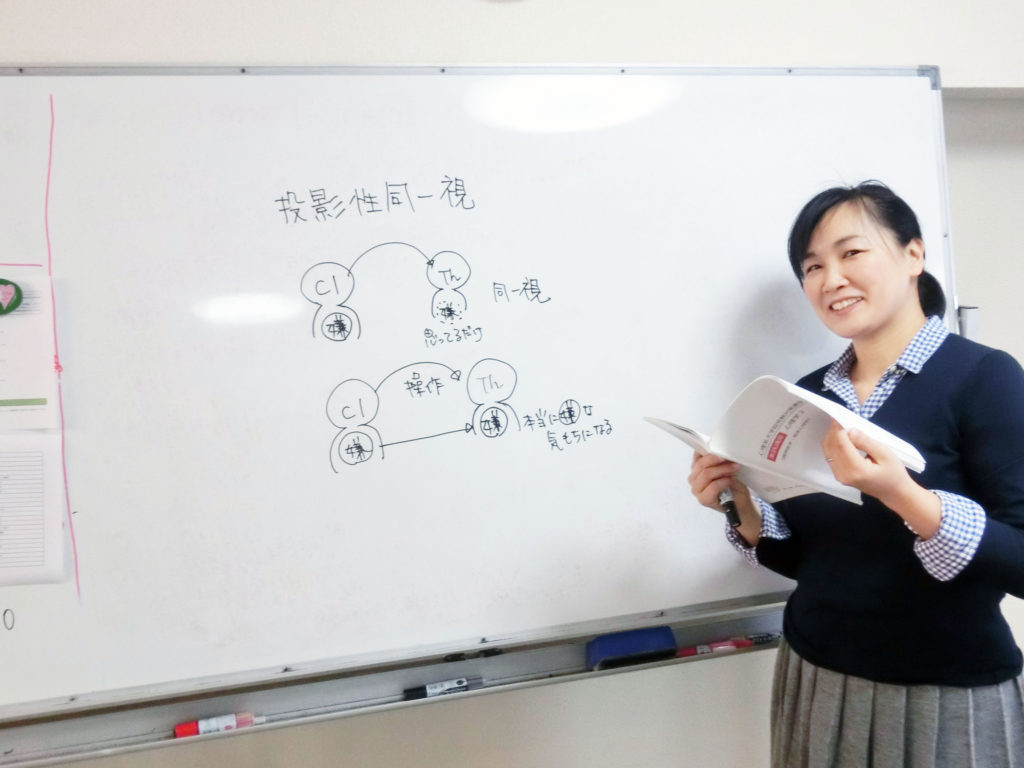 投影性同一視
Cl
Th
嫌
嫌
同一視
思ってるだけ
操作
Cl
Th
嫌
嫌
本当に嫌な
気もちになる
0